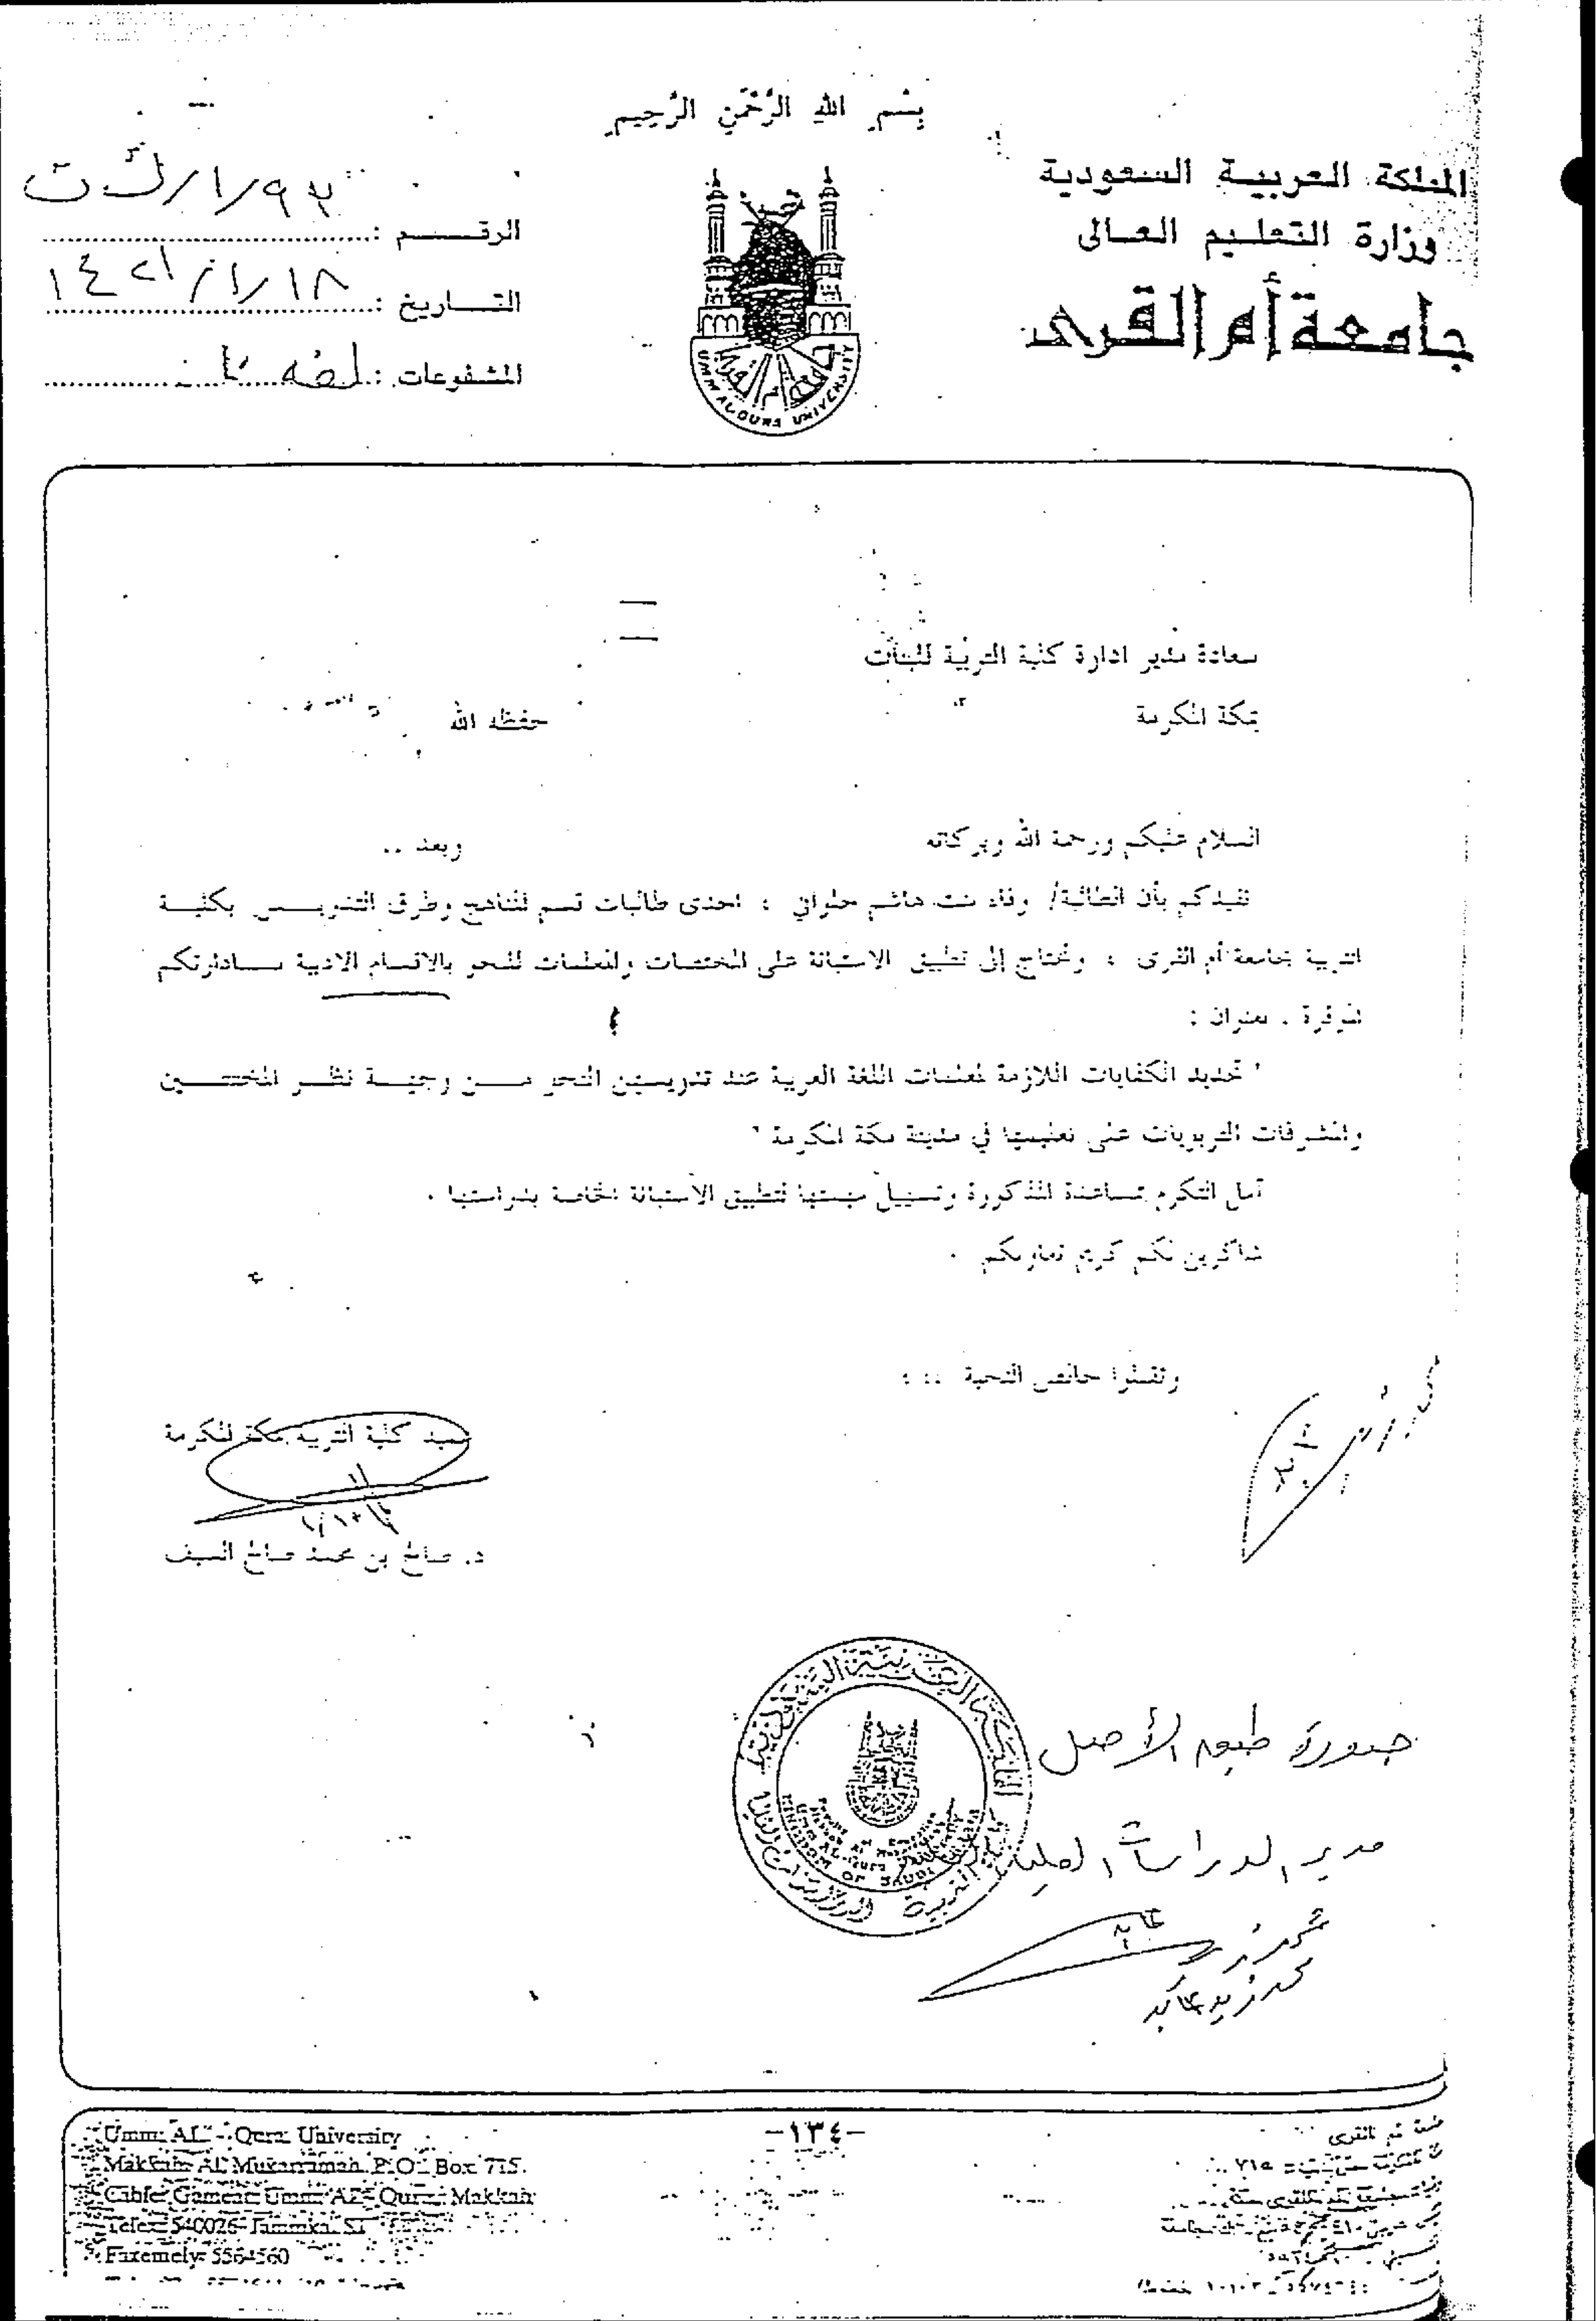 بِسْمِ اللهِ الرَّحْمَنِ الرَّحِيمِ
المملكة العربية السعودية
وزارة التعليم العالى
جامعة أم القرى
الرقـــم :
التــاريخ : ١٤٢١/١/١٨
المشفوعات :
UMM AL QURA UNIVERSITY
سعادة مدير ادارة كلية التربية للبنات
بمكة المكرمة حفظه الله
السلام عليكم ورحمة الله وبركاته وبعد ..
نفيدكم بأن الطالبة/ وفاء بنت هاشم حلواني ، احدى طالبات قسم المناهج وطرق التدريس بكلية
التربية بجامعة أم القرى ، وتحتاج إلى تطبيق الاستبانة على المختصات والمعلمات للنحو بالاقسام الادبية بادارتكم
الموقرة . بعنوان :
" تحديد الكفايات اللازمة لمعلمات اللغة العربية عند تدريسهن النحو من وجهة نظر المختصين
والمشرفات التربويات على تعليمها في مدينة مكة المكرمة "
آمل التكرم بمساعدة المذكورة وتسهيل مهمتها لتطبيق الاستبانة الخاصة بدراستها .
شاكرين لكم كريم تعاونكم .
وتقبلوا خالص التحية ،،،
عميد كلية التربية بمكة المكرمة
د. صالح بن محمد صالح السيف
صورة طبق الأصل
مدير الدراسات العليا
محمد زيد عابد
-١٣٤-
Umm AL - Qura University
Makkah Al Mukarramah P.O. Box 715
Cable Gameat Umm AL - Qura Makkah
Telex 540026 Jammka SJ
Faxemely 5564560